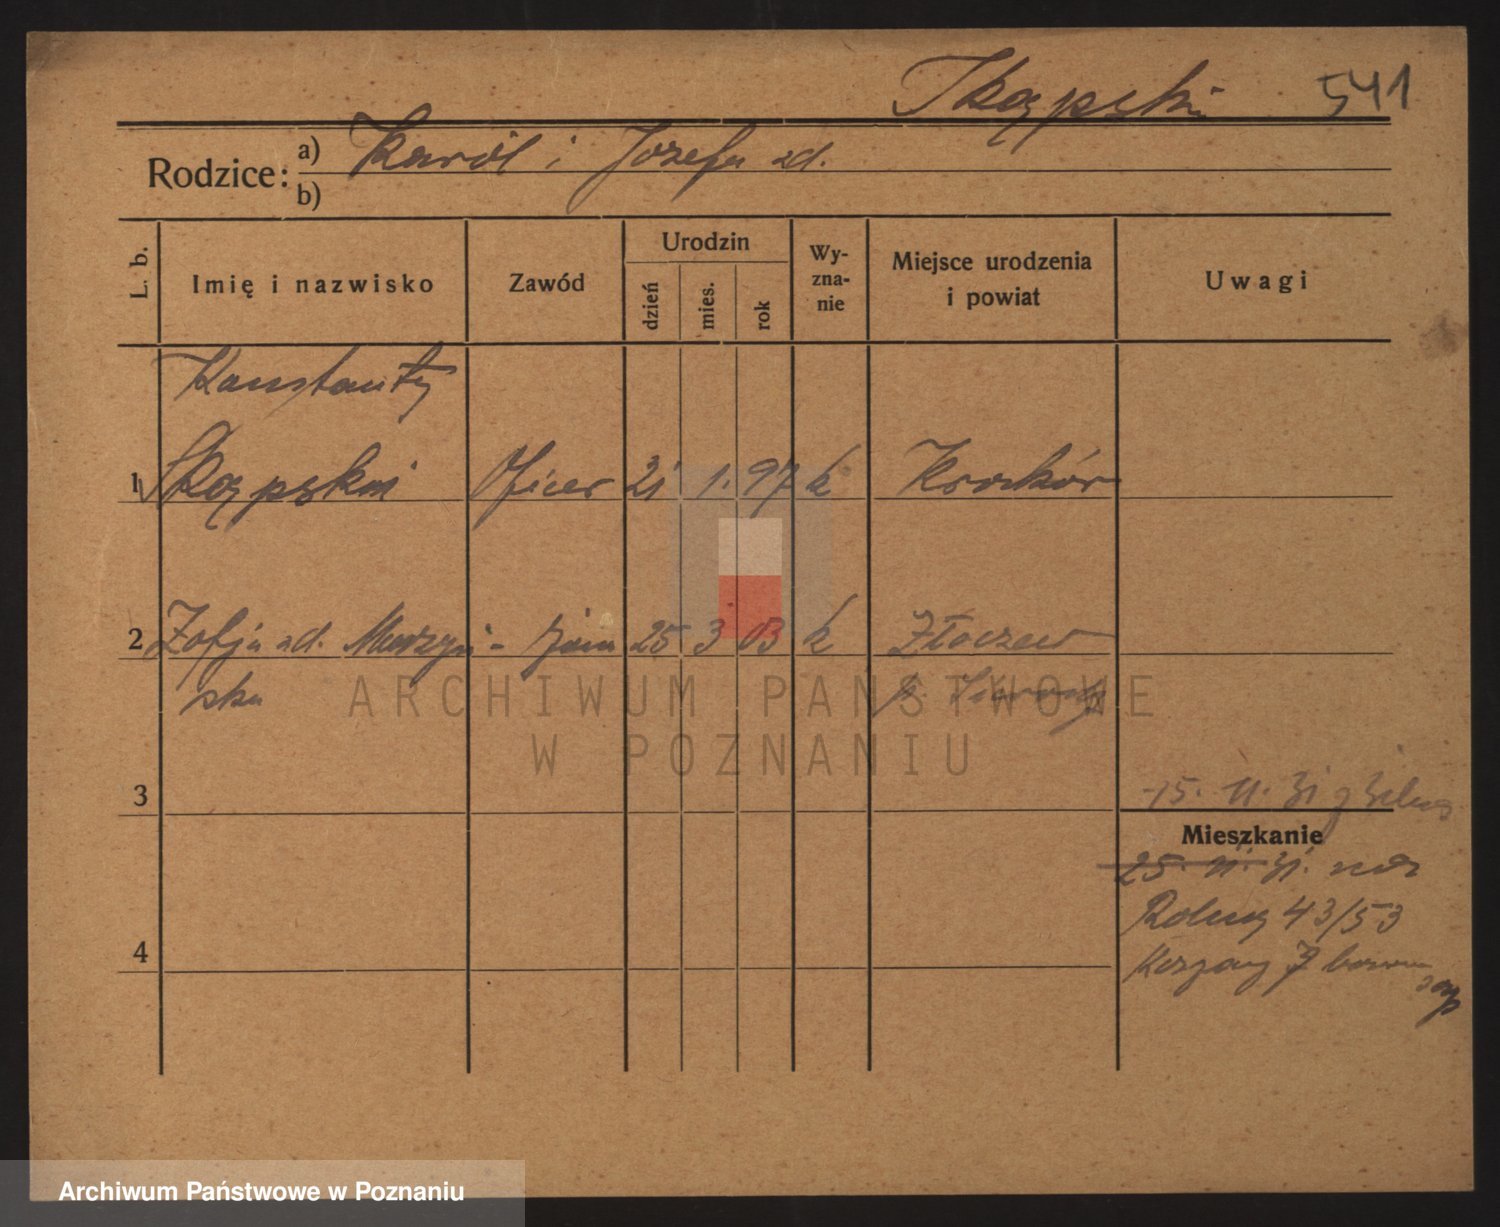 Skąpski 541
Rodzice: a) Karól i Józefa zd.
b)
L. b. Imię i nazwisko Zawód Urodzin dzień mies. rok Wy-zna-nie Miejsce urodzenia i powiat Uwagi
Konstanty
1 Skąpski Oficer 21 1. 97 k Kraków
2 Zofja zd. Murzyń- żona 25 3 03 k Złoczew
ska p.
3 15. 11. 31
Mieszkanie
25. 11. 31.
Rolna 43/53
4
ARCHIWUM PAŃSTWOWE
W POZNANIU
Archiwum Państwowe w Poznaniu